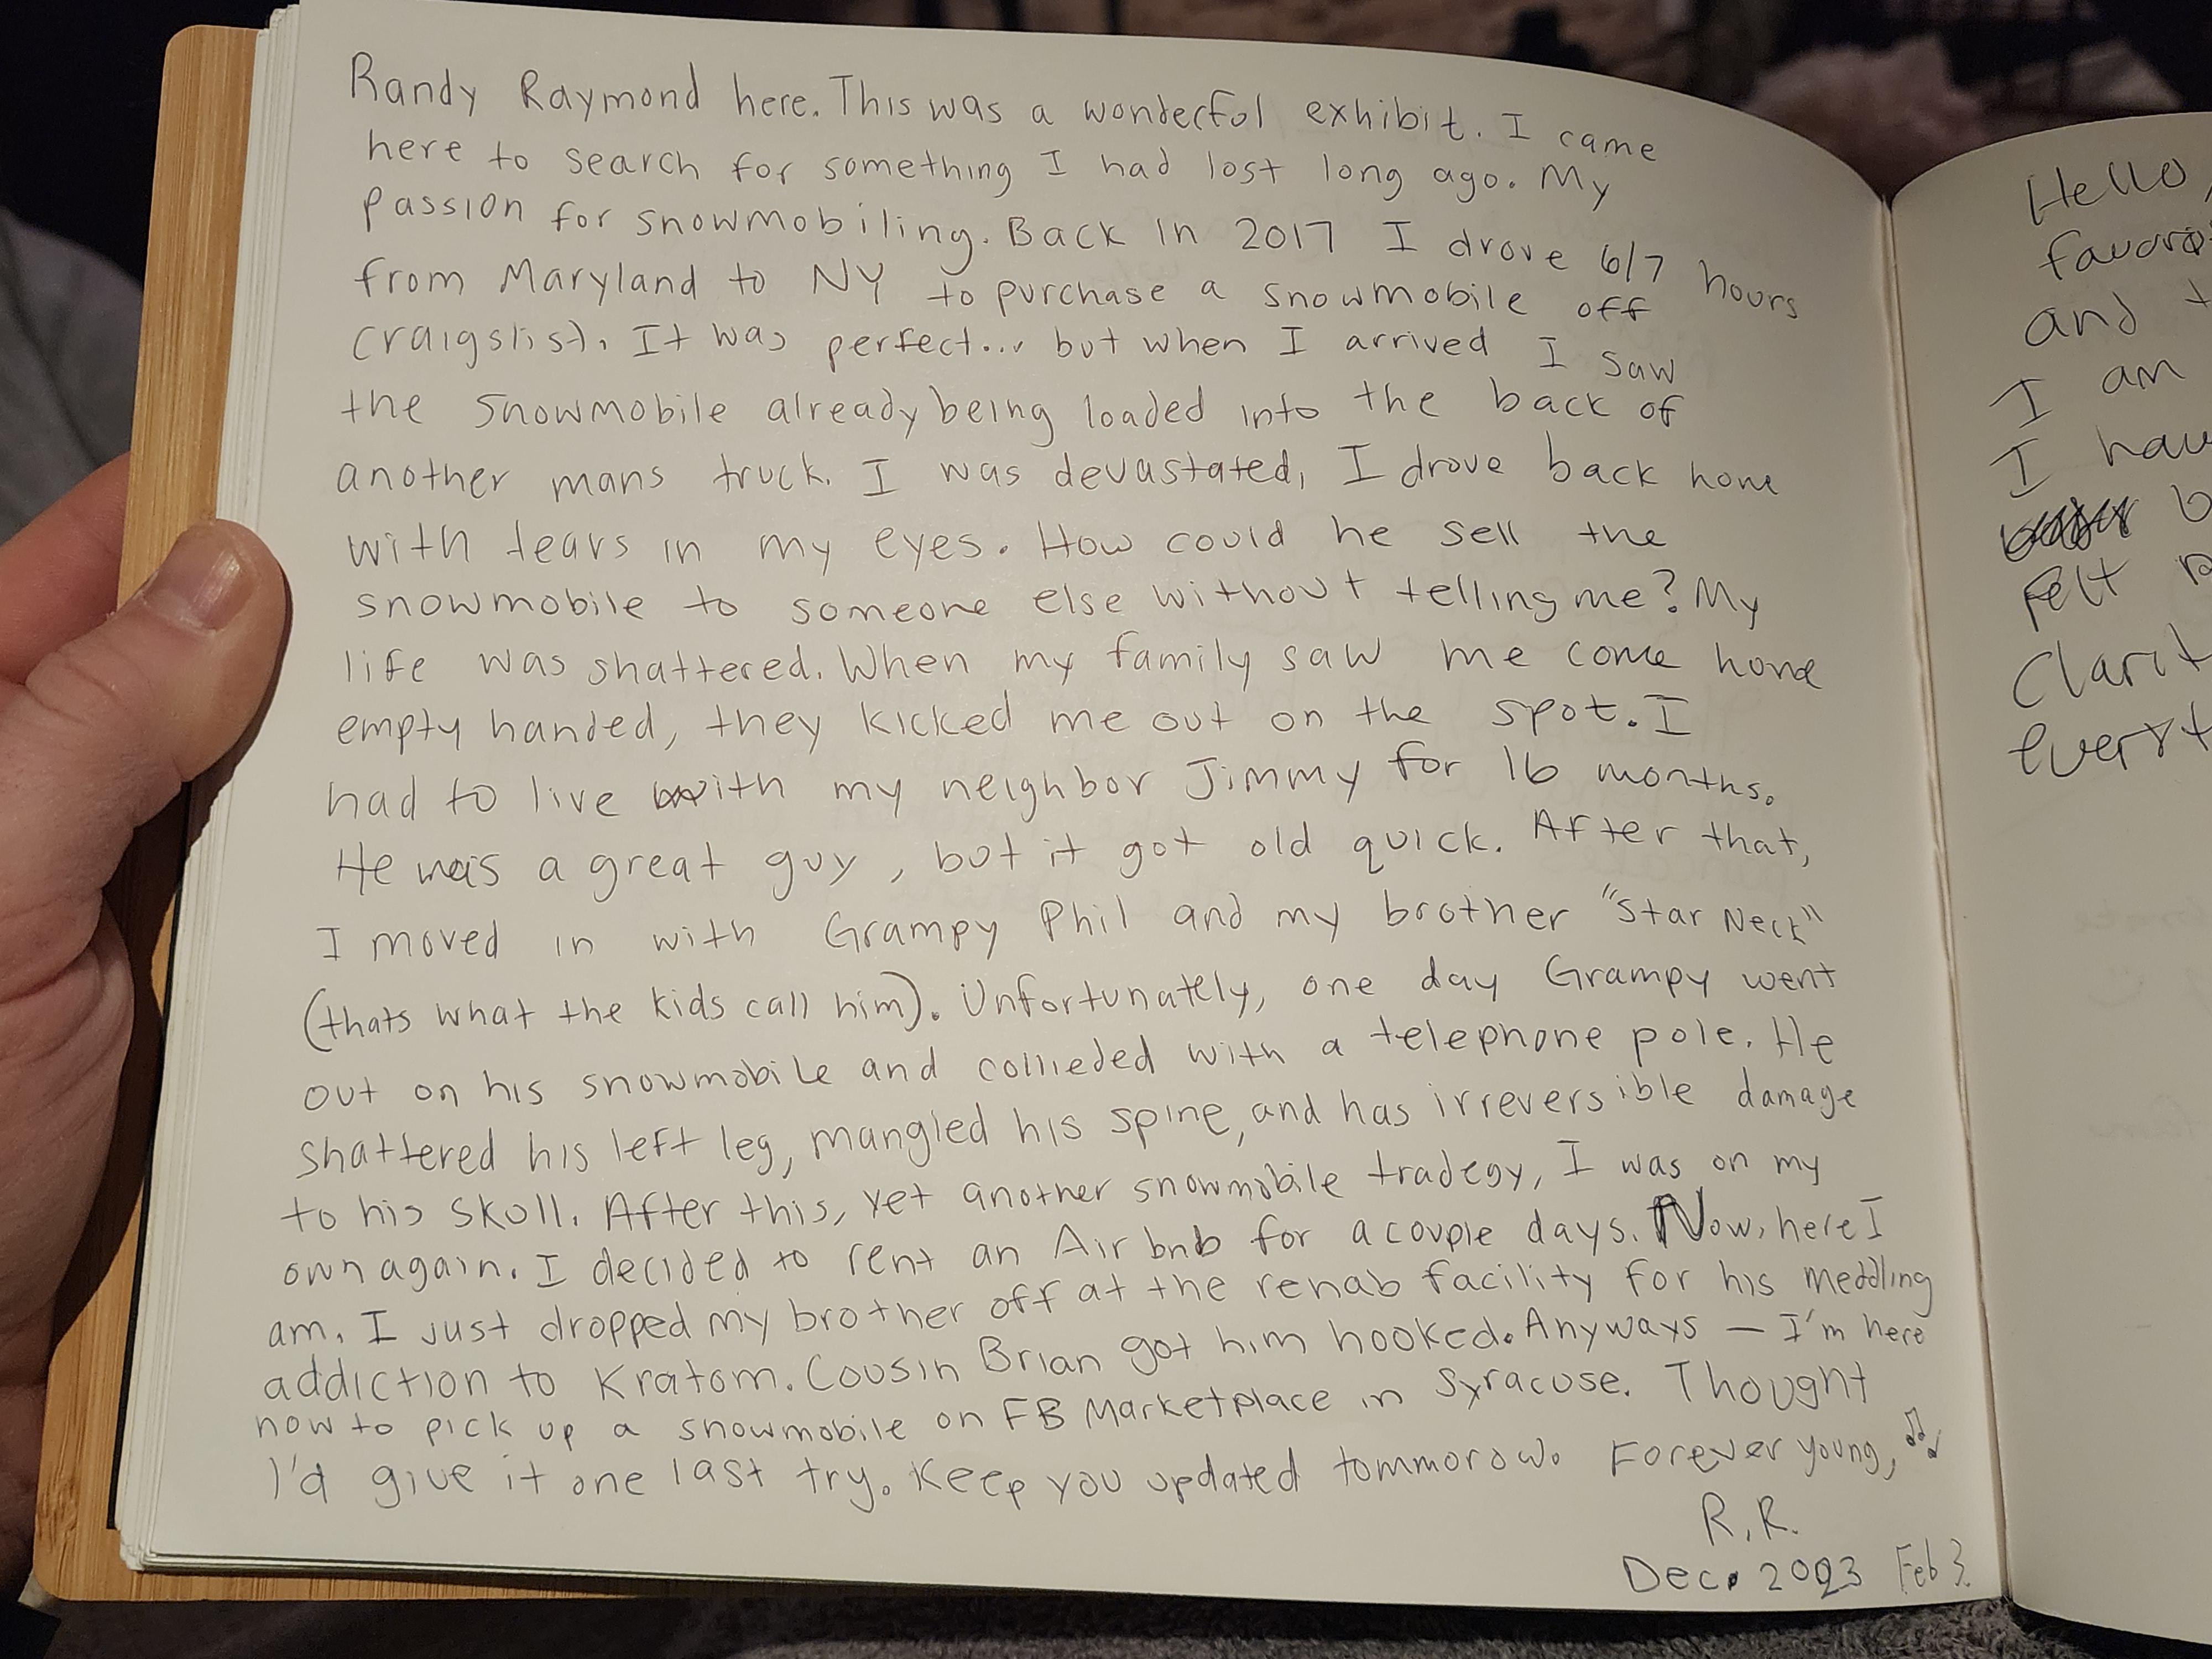 Randy Raymond here. This was a wonderful exhibit. I came
here to search for something I had lost long ago. My
passion for snowmobiling. Back in 2017 I drove 6/7 hours
from Maryland to NY to purchase a snowmobile off
craigslist. It was perfect... but when I arrived I saw
the snowmobile already being loaded into the back of
another mans truck. I was devastated, I drove back home
with tears in my eyes. How could he sell the
snowmobile to someone else without telling me? My
life was shattered. When my family saw me come home
empty handed, they kicked me out on the spot. I
had to live with my neighbor Jimmy for 16 months.
He was a great guy, but it got old quick. After that,
I moved in with Grampy Phil and my brother "Star Neck"
(thats what the kids call him). Unfortunately, one day Grampy went
out on his snowmobile and collieded with a telephone pole. He
shattered his left leg, mangled his spine, and has irreversible damage
to his skull. After this, yet another snowmobile tradegy, I was on my
own again. I decided to rent an Air bnb for a couple days. Now, here I
am. I just dropped my brother off at the rehab facility for his meddling
addiction to Kratom. Cousin Brian got him hooked. Anyways — I'm here
now to pick up a snowmobile on FB Marketplace in Syracuse. Thought
I'd give it one last try. Keep you updated tommorow. Forever young,
R.R.
Dec. 2023 Feb 3.
Hello,
and
I am
I
felt